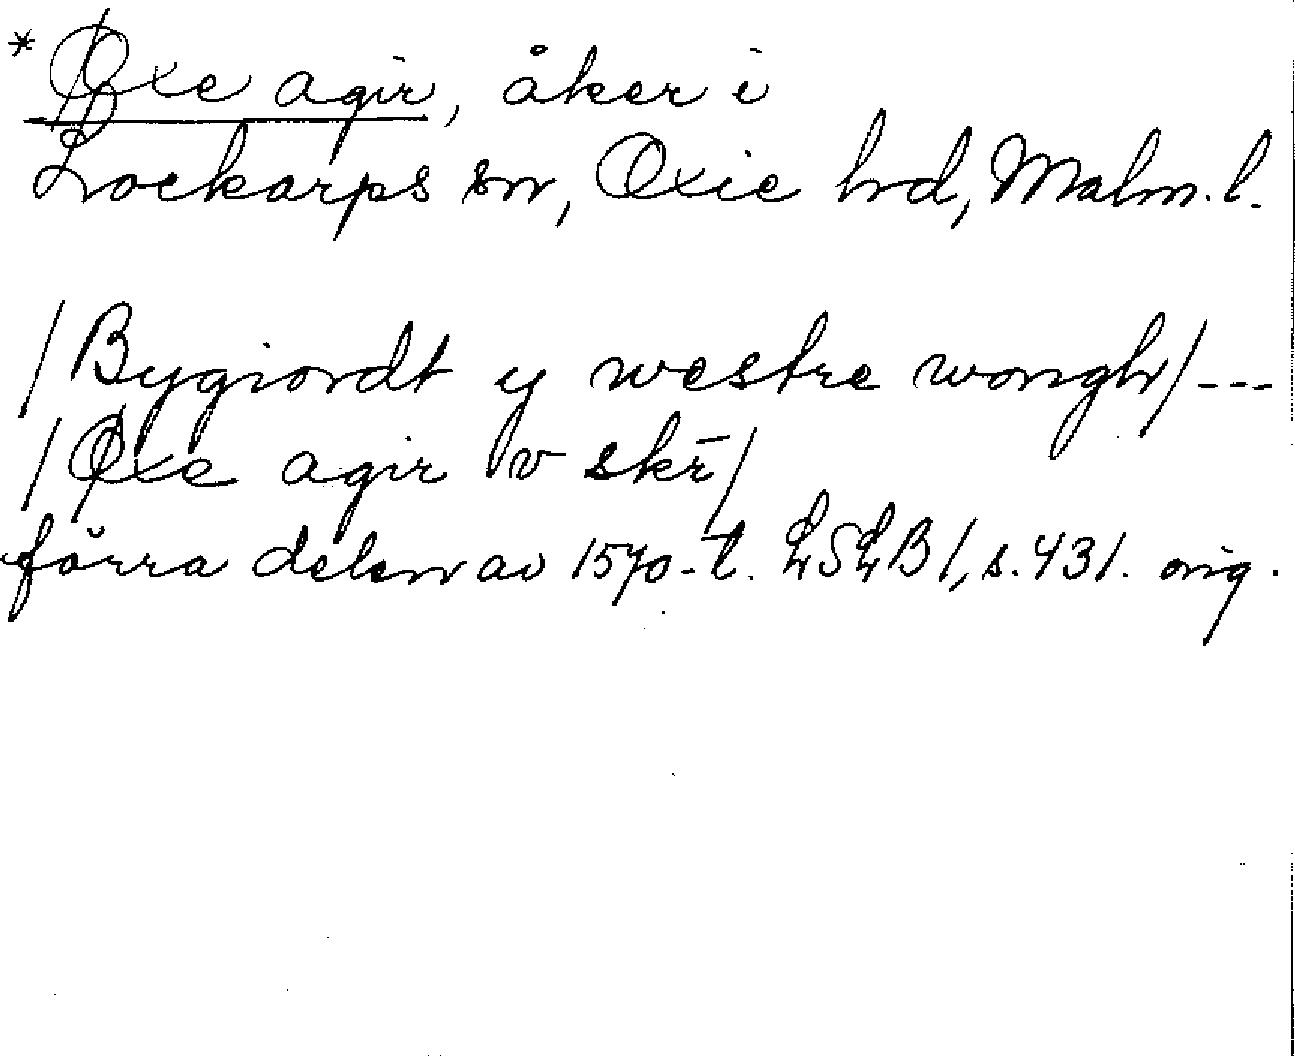 *Øxe agir, åker i
Lockarps sn, Oxie hd, Malm. l.
/Bygiordt y westre wongh/---
/Øxe agir v skr̄/
förra delen av 1570-t. LSLB 1, s. 431. orig.